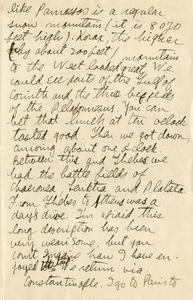 like Parnassos is a regular
snow mountain (it is 8070
feet high). Korax, tho higher
only about 200 feet / mountain
to the West looked great. We
could see parts of the Gulf of
Corinth and the three fingers
of the Peloponnesus. You can
bet that lunch at ten oclock
tasted good. Then we got down,
arriving about one o'clock.
Between this and Thebes we
had the battle fields of
Chaeronea, Leuktra and Plataea
From Thebes to Athens was a
days drive. I'm afraid this
long description has been
very wearisome, but you
can't imagine how I have en-
joyed it. We return via
Constantinople. I go to Paris to